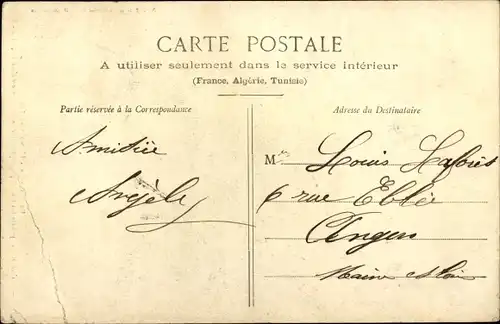 CARTE POSTALE
A utiliser seulement dans le service intérieur
(France, Algérie, Tunisie)
Partie réservée à la Correspondance
Adresse du Destinataire
Amitiée
Angèle
M Louis
6 rue Eblé
Angers
Maine & Loire